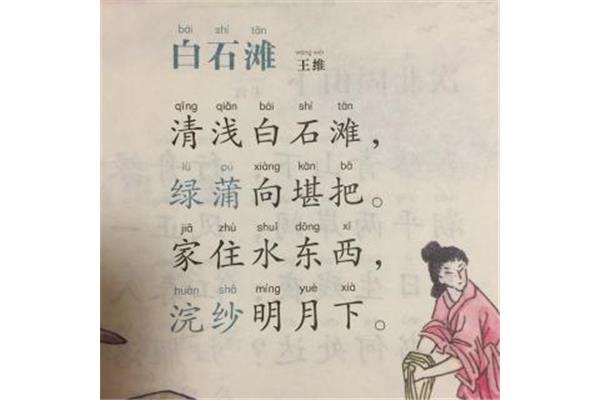 bái shí tān
白石滩
wáng wéi
王维
qīng qiǎn bái shí tān
清浅白石滩，
lǜ pú xiàng kān bǎ
绿蒲向堪把。
jiā zhù shuǐ dōng xī
家住水东西，
huàn shā míng yuè xià
浣纱明月下。